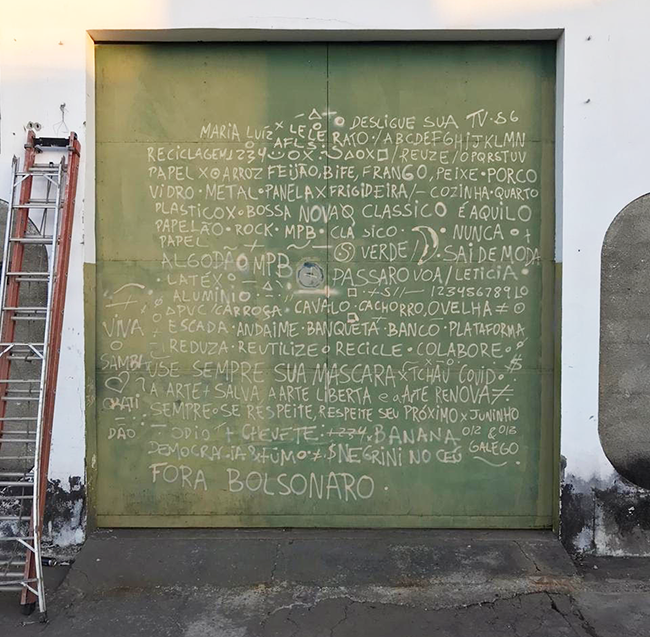 DESLIGUE SUA TV · S6
MARIA LUIZ × LELE RATO · / ABCDEFGHIJKLMN
AFLS
RECICLAGEM 1234 OX · SΔOX□ / REUZE / OPQRSTUV
PAPEL × ARROZ FEIJÃO, BIFE, FRANGO, PEIXE · PORCO
VIDRO · METAL · PANELA × FRIGIDEIRA / - COZINHA · QUARTO
PLASTICO × · BOSSA NOVA CLASSICO É AQUILO
PAPELÃO · ROCK · MPB · CLASICO · NUNCA · +
PAPEL VERDE / SAI DE MODA
ALGODÃO MPB PASSARO VOA / LETICIA ·
· LATÉX · 12345678910
· ALUMÍNIO
PVC / CARROÇA CAVALO · CACHORRO, OVELHA ≠
· ESCADA · ANDAIME · BANQUETA · BANCO · PLATAFORMA
VIVA O SAMBA
· REDUZA · REUTILIZE · RECICLE · COLABORE · $
USE SEMPRE SUA MASCARA × TCHAU COVID ·
A ARTE + SALVA, A ARTE LIBERTA e a ARTE RENOVA ≠
SEMPRE · SE RESPEITE, RESPEITE SEU PRÓXIMO × JUNINHO
DÃO - ODIO + CHEVETE · 1234 · BANANA 012 & 013
NEGRINI NO CEU GALEGO
FORA BOLSONARO ·